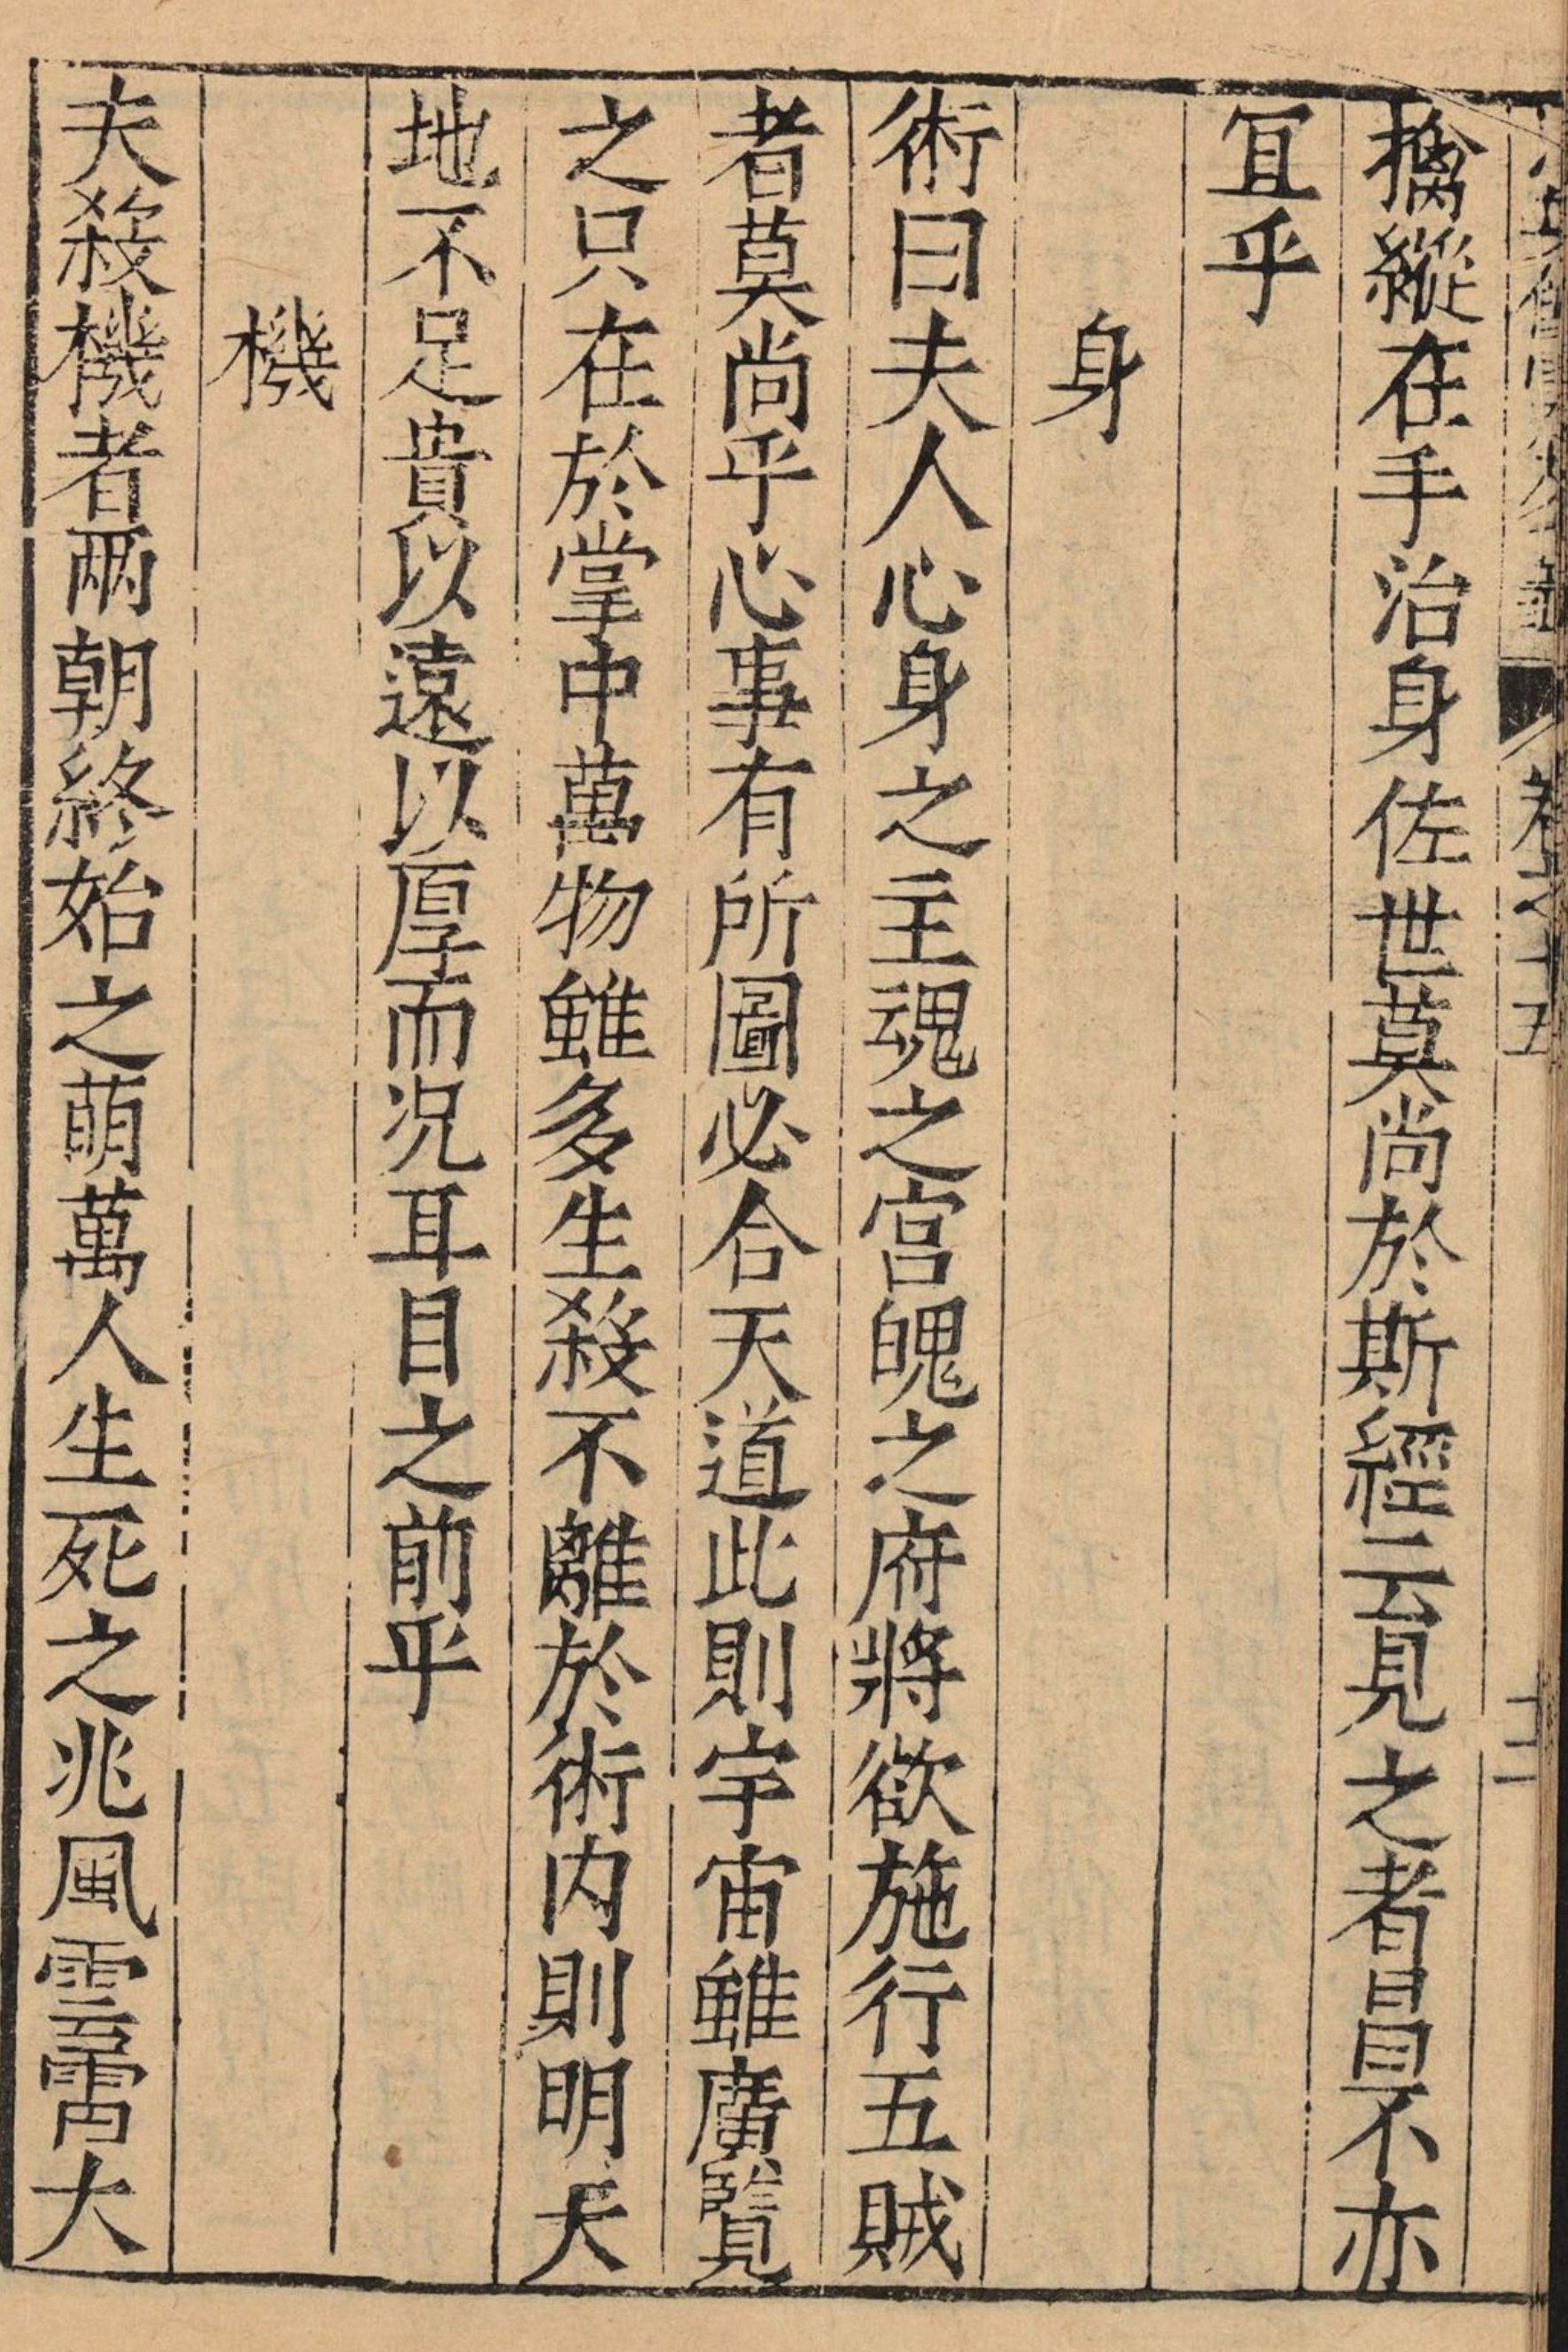 卷之十五
十二
擒縱在手治身佐世莫尚於斯經云見之者昌不亦
冝乎
身
術曰夫人心身之主魂之宫魄之府將欲施行五賊
者莫尚乎心事有所圖必合天道此則宇宙雖廣覽
之只在於掌中萬物雖多生殺不離於術内則明天
地不足貴以遠以厚而况耳目之前乎
機
夫殺機者兩朝終始之萌萬人生死之兆風雲霱大